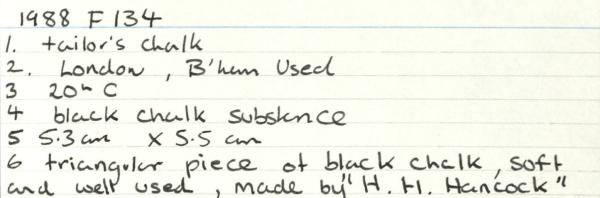 1988 F 134
1. tailor's chalk
2. London, B'ham Used
3 20th C
4 black chalk substance
5 5.3 cm x 5.5 cm
6 triangular piece of black chalk, soft
and well used, made by "H. H. Hancock"